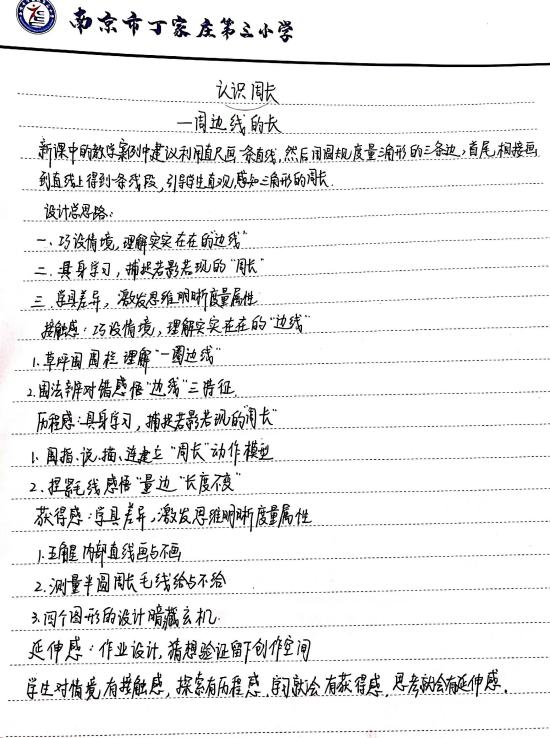 南京市丁家庄第三小学
认识周长
一周边线的长
新课中的教学案例中建议利用直尺画一条直线,然后用圆规度量三角形的三条边,首尾相接画
到直线上得到一条线段,引导学生直观感知三角形的周长.
设计总思路:
一、巧设情境,理解实实在在的"边线"
二、具身学习,捕捉若影若现的"周长"
三、学具差异,激发思维明晰度量属性
接触感:巧设情境,理解实实在在的"边线"
1.草坪围围栏理解"一圈边线"
2.围法辨对错感悟"边线"三特征
历程感:具身学习,捕捉若影若现的"周长"
1.围、指、说、描、连建立"周长"动作模型
2.捏彩毛线感悟"量边""长度不变"
获得感:学具差异,激发思维明晰度量属性
1.五角星内部直线画与不画
2.测量半圆周长毛线给与不给
3.四个图形的设计暗藏玄机.
延伸感:作业设计,猜想验证留下创作空间
学生对情境有接触感,探索有历程感,学习就会有获得感,思考就会有延伸感.